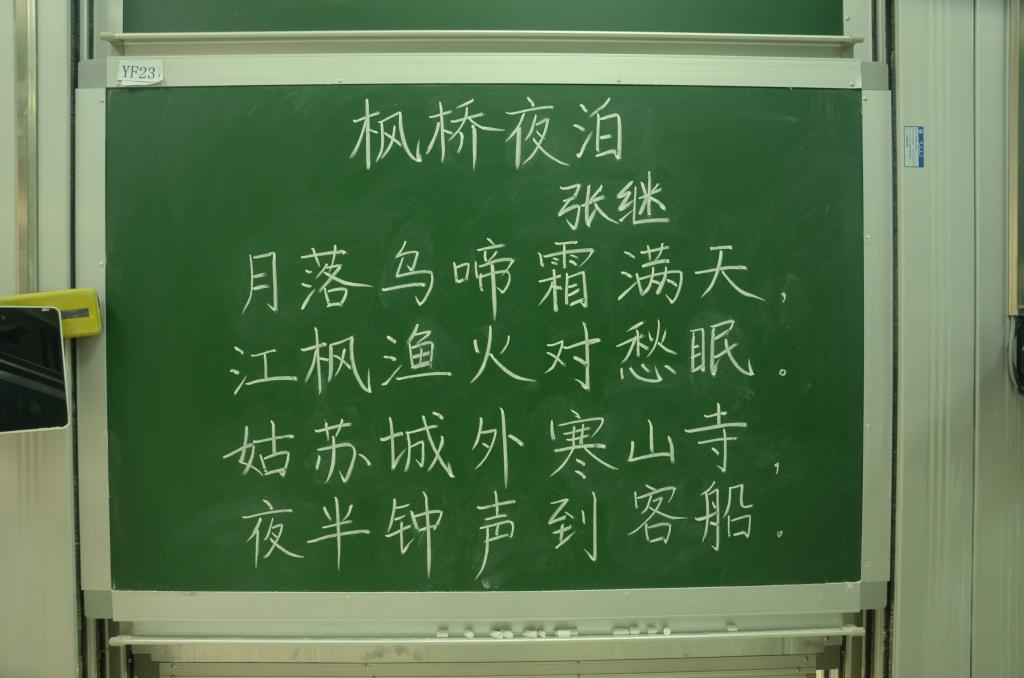 YF23
枫桥夜泊
张继
月落乌啼霜满天，
江枫渔火对愁眠。
姑苏城外寒山寺，
夜半钟声到客船。